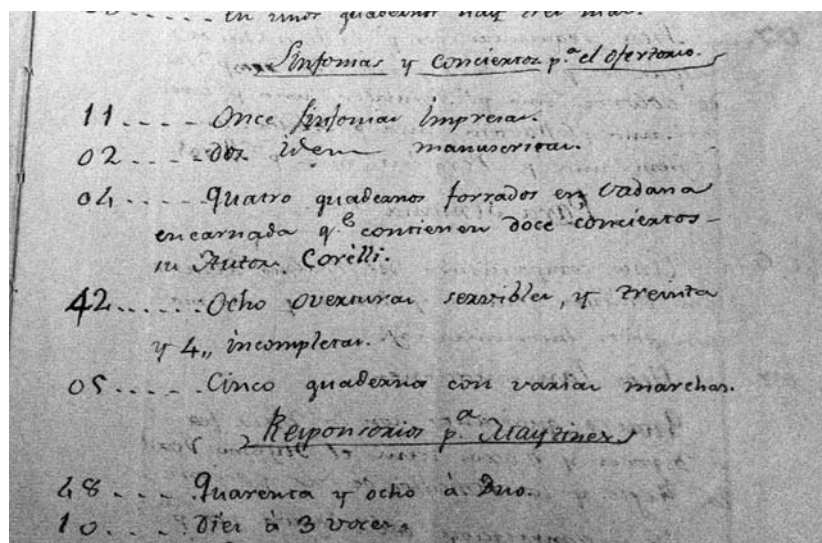 en unos quadernos hay tres mas.
Sinfonias y Conciertos p.ª el ofertorio.
11 - - - - Once sinfonias Impresas.
02 - - - - Dos idem manuscritas.
04 - - - - Quatro quadernos forrados en Vadana
encarnada q.e contienen doce conciertos -
su Autor Corelli.
42 - - - - Ocho overturas servibles, y treinta
y 4,, incompletas.
05 - - - - Cinco quadernos con varias marchas.
Responsorios p.ª Maytines
48 - - - Quarenta y ocho à Duo.
10 - - - Diez à 3 voces.